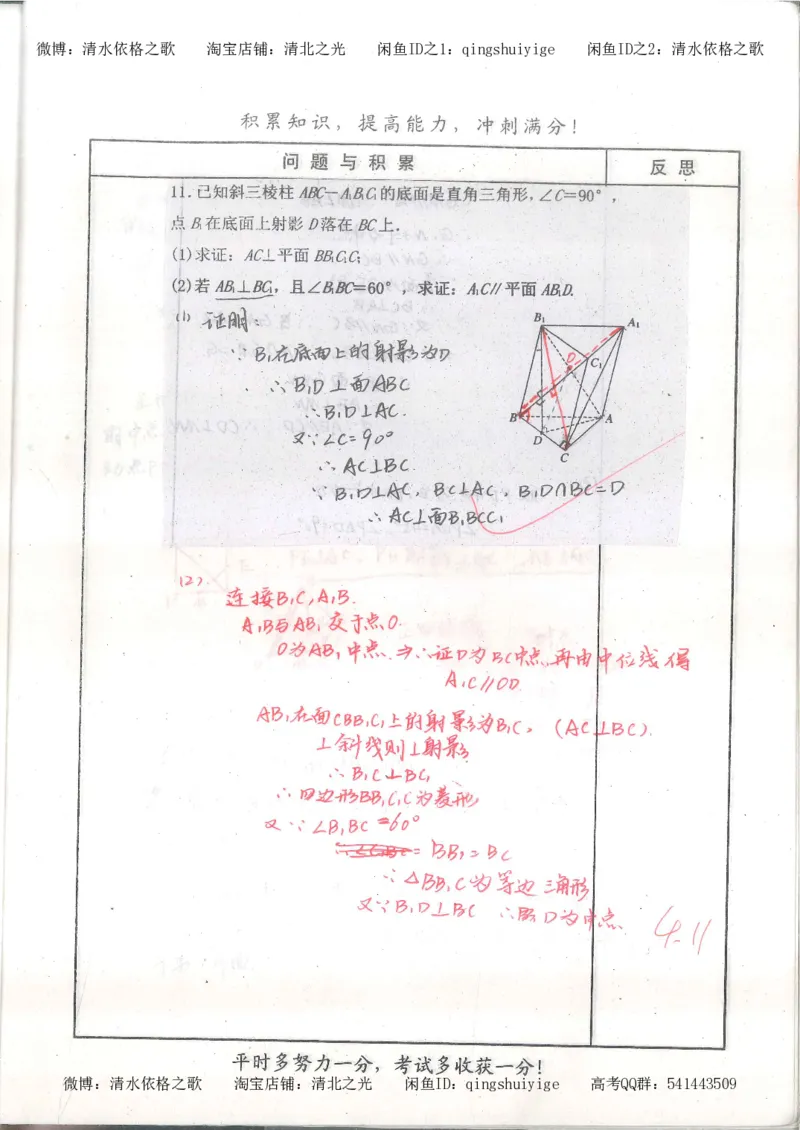 微博：清水依格之歌　淘宝店铺：清北之光　闲鱼ID之1：qingshuiyige　闲鱼ID之2：清水依格之歌
积累知识，提高能力，冲刺满分！
问题与积累　反思
11.已知斜三棱柱ABC-A₁B₁C₁的底面是直角三角形，∠C=90°，
点B₁在底面上射影D落在BC上．
(1)求证：AC⊥平面BB₁C₁C；
(2)若AB₁⊥BC₁，且∠B₁BC=60°，求证：A₁C∥平面AB₁D.
(1) 证明：
∵B₁在底面上的射影为D
∴B₁D⊥面ABC
∴B₁D⊥AC.
又∵∠C=90°
∴AC⊥BC.
∵B₁D⊥AC，BC⊥AC，B₁D∩BC=D
∴AC⊥面B₁BCC₁
B₁
A₁
O
C₁
B
A
D
C
(2).
连接B₁C,A₁B.
A₁B与AB₁交于点O.
O为AB₁中点.⇒∴证D为BC中点,再由中位线得
A₁C//OD.
AB₁在面CBB₁C₁上的射影为B₁C，(AC⊥BC).
⊥斜线则⊥射影
∴B₁C⊥BC₁
∴四边形BB₁C₁C为菱形
又∵∠B₁BC=60°
BB₁=BC
∴△BB₁C为等边三角形
又∵B₁D⊥BC ∴D为中点.
4.11
平时多努力一分，考试多收获一分！
微博：清水依格之歌　淘宝店铺：清北之光　闲鱼ID：qingshuiyige　高考QQ群：541443509